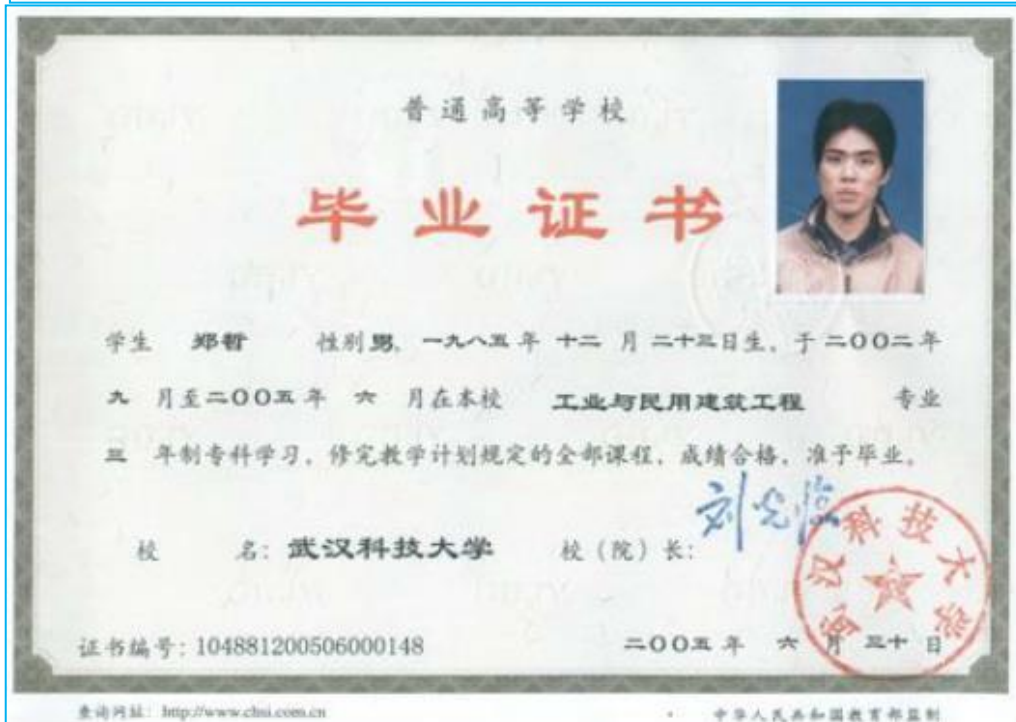 普通高等学校
毕业证书
学生 郑哲 性别男，一九八五年 十二 月 二十三日生，于二〇〇二年
九 月至二〇〇五年 六 月在本校 工业与民用建筑工程 专业
三 年制专科学习，修完教学计划规定的全部课程，成绩合格，准予毕业。
校 名：武汉科技大学 校（院）长：刘光临
武汉科技大学
证书编号：104881200506000148 二〇〇五年 六 月 三十 日
查询网址：http://www.chsi.com.cn 中华人民共和国教育部监制